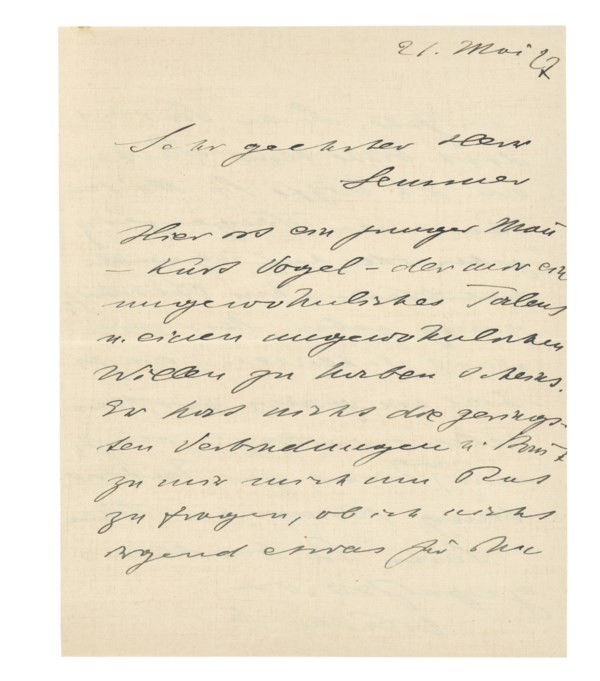 21. Mai 27
Sehr geehrter Herr
Hier ist ein junger Mann
– Kurt Vogel – der mir ein
ungewöhnliches Talent
u. einen ungewöhnlichen
Willen zu haben scheint.
Er hat nicht die gerings-
ten Verbindungen u. kam
zu mir mich um Rat
zu fragen, ob ich nicht
irgend etwas für ihn